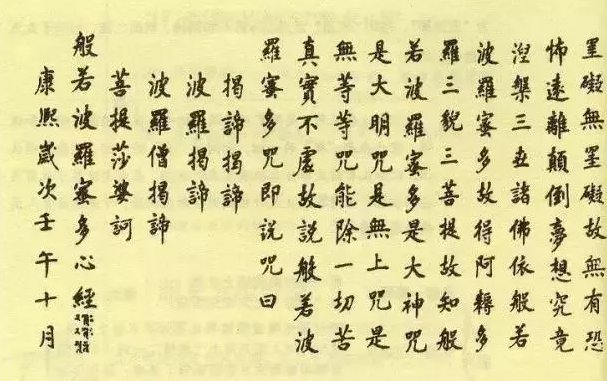 罣礙無罣礙故無有恐
怖遠離顛倒夢想究竟
涅槃三世諸佛依般若
波羅蜜多故得阿耨多
羅三藐三菩提故知般
若波羅蜜多是大神咒
是大明咒是無上咒是
無等等咒能除一切苦
真實不虛故說般若波
羅蜜多咒即說咒曰
揭諦揭諦
波羅揭諦
波羅僧揭諦
菩提莎婆訶
般若波羅蜜多心經
康熙歲次壬午十月